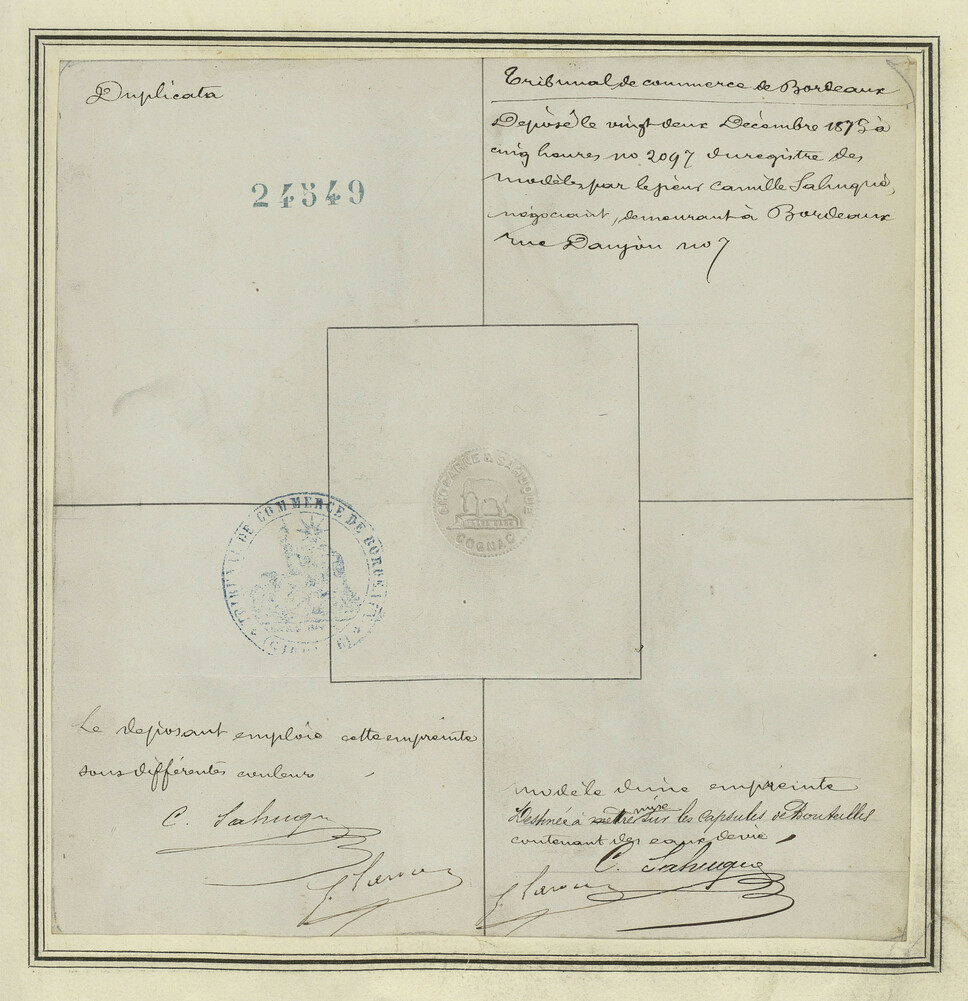 Duplicata
24549
Tribunal de commerce de Bordeaux
Déposé le vingt deux Décembre 1875 à
cinq heures no 2097 du registre des
modèles par le sieur Camille Sahuqué,
négociant, demeurant à Bordeaux
rue Daujon no 7
& SAHUQUÉ
COGNAC
TRIBUNAL DE COMMERCE DE BORDEAUX
Le déposant emploie cette empreinte
sous différentes couleurs
C. Sahuqué
modèle d'une empreinte
Destinée à être mise sur les capsules de Bouteilles
contenant des eaux devie
C. Sahuqué